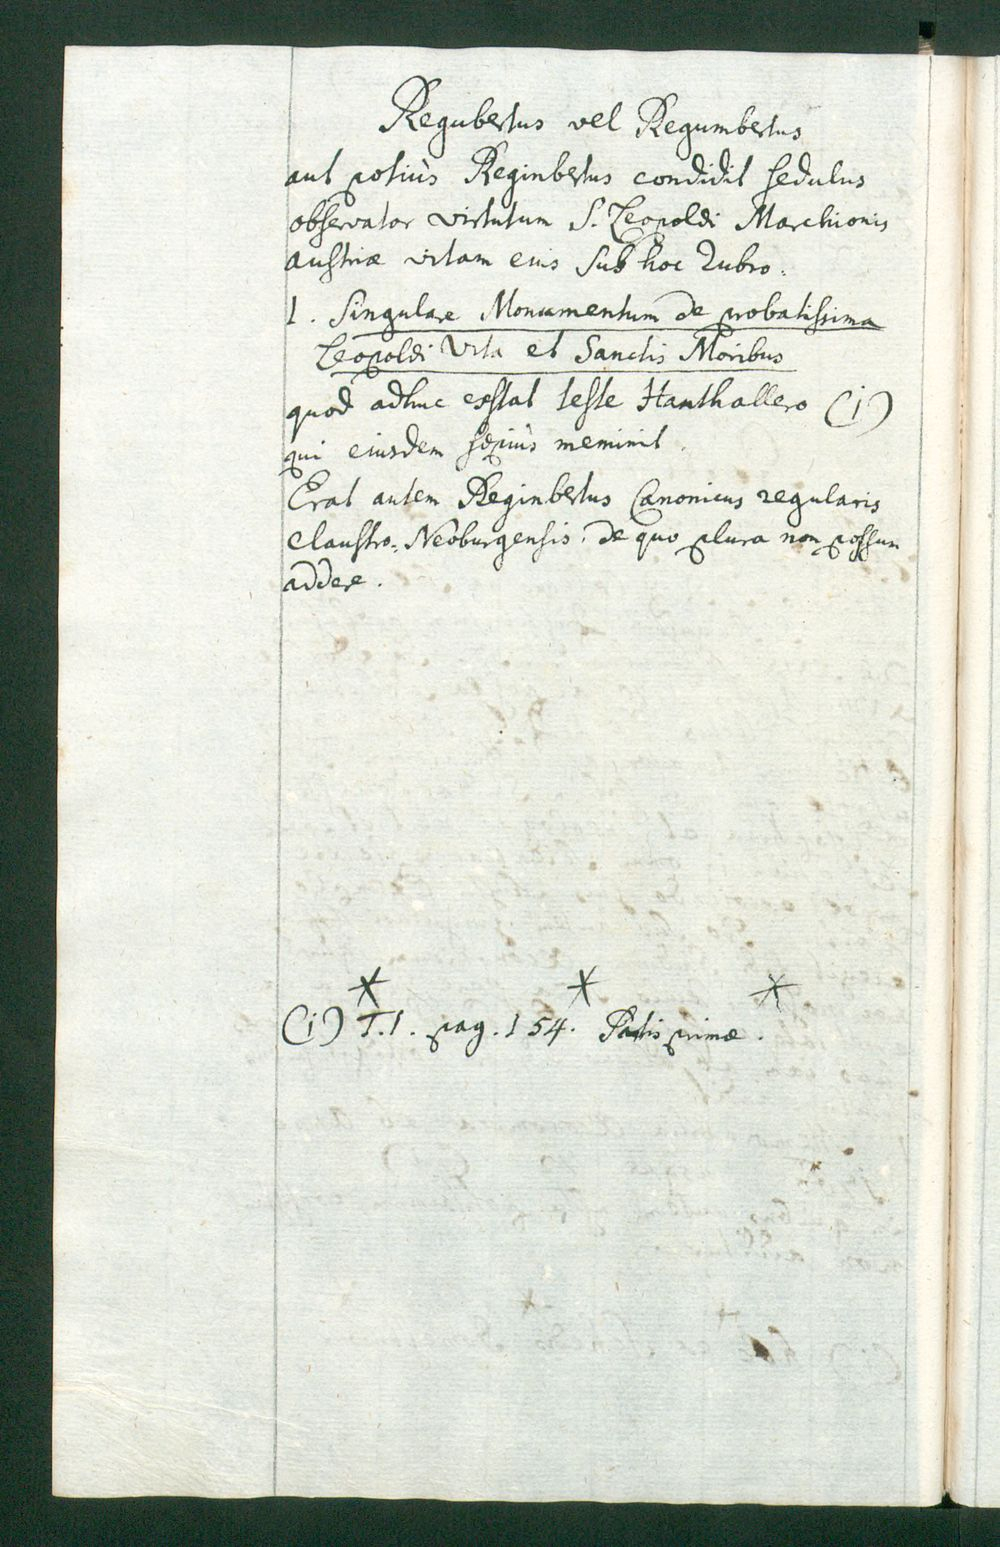 Regubertus vel Regumbertus
aut potiùs Reginbertus condidit sedulus
observator virtutum S. Leopoldi Marchionis
austriæ vitam eius sub hoc Rubro.
1. Singulare Monumentum de probatissima
Leopoldi Vita et Sanctis Moribus
quod adhuc exstat teste Hanthallero (i)
qui eiusdem sæpiùs meminit.
Erat autem Reginbertus Canonicus regularis
Claustro-Neoburgensis: de quo plura non possum
addere.
* * *
(i) T.1. pag. 154. Partis primæ.